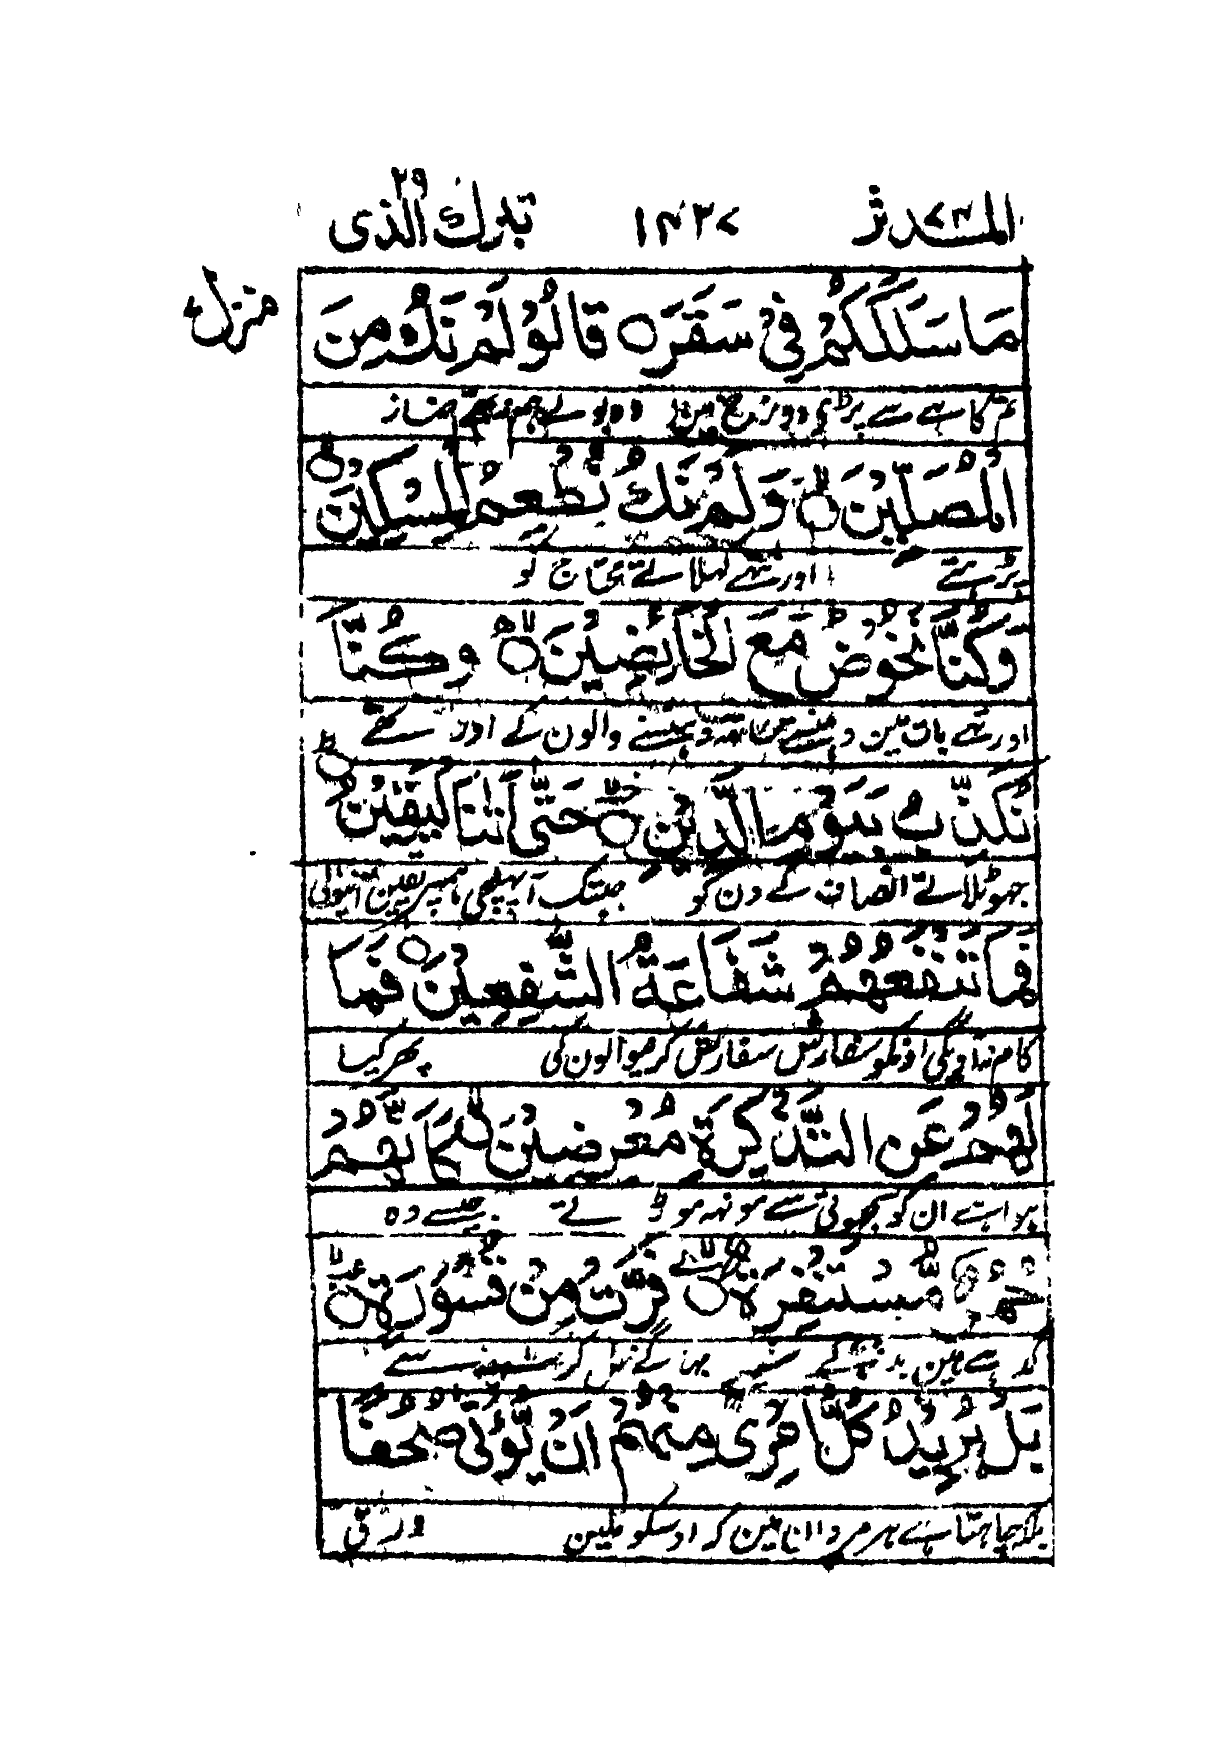 المدثر ٧٤ ١٤٣٧ تبرك الذی ٢٩
منزل
مَا سَلَكَكُمْ فِيْ سَقَرَ ○ قَالُوْا لَمْ نَكُ مِنَ
تم کاہے سے پڑی دوزخ مین وہ بولے ہم نہ تھے نماز
الْمُصَلِّيْنَ ○ وَلَمْ نَكُ نُطْعِمُ الْمِسْكِيْنَ ○
پڑہتے اور نتہے کہلاتے محتاج کو
وَكُنَّا نَخُوْضُ مَعَ الْخَآئِضِيْنَ ○ وَكُنَّا
اور تہے بات مین دہنستے ساتھ دہنسنے والون کے اور تہے
نُكَذِّبُ بِيَوْمِ الدِّيْنِ ○ حَتّٰى اَتٰنَا الْيَقِيْنُ
جہوٹلاتے انصاف کے دن کو جبتک آپہنچی ہمپر یقین
فَمَا تَنْفَعُهُمْ شَفَاعَةُ الشّٰفِعِيْنَ ○ فَمَا
کام نہ آویگی اونکو سفارش سفارش کرنیوالون کی پھر کیا
لَهُمْ عَنِ التَّذْكِرَةِ مُعْرِضِيْنَ كَاَنَّهُمْ
ہوا ہے ان کو سے مونہہ موڑتے جیسے وہ
حُمُرٌ مُّسْتَنْفِرَةٌ ○ فَرَّتْ مِنْ قَسْوَرَةٍ ○
گدہے ہین بدکے بہاگے سے
بَلْ يُرِيْدُ كُلُّ امْرِئٍ مِّنْهُمْ اَنْ يُّؤْتٰى صُحُفًا
بلکہ چاہتا ہے ہر مرد ان مین کہ اوسکو ملین ورق